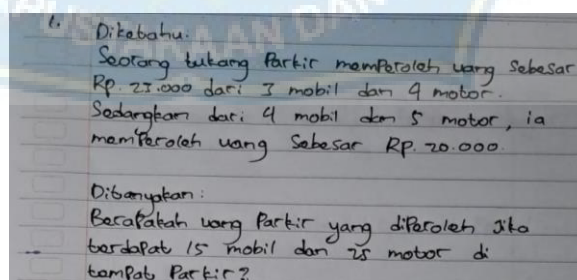 1. Diketahu:
Seorang tukang Parkir memperoleh uang sebesar
Rp. 23.000 dari 3 mobil dan 9 motor.
Sedangkan dari 4 mobil dan 5 motor, ia
memperoleh uang Sebesar Rp. 20.000.
Ditanyakan:
Berapakah uang Parkir yang diperoleh Jika
terdapat 15 mobil dan 25 motor di
tempat Parkir?